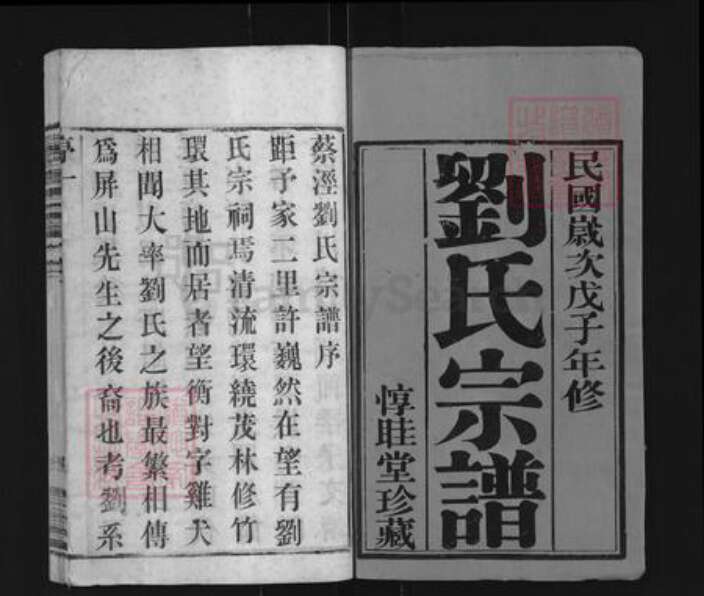 民國歲次戊子年修
劉氏宗譜
惇睦堂珍藏
蔡涇劉氏宗譜序
距予家二里許巍然在望有劉
氏宗祠焉清流環繞茂林修竹
環其地而居者望衡對宇雞犬
相聞大率劉氏之族最繁相傳
為屏山先生之後裔也考劉系
序一